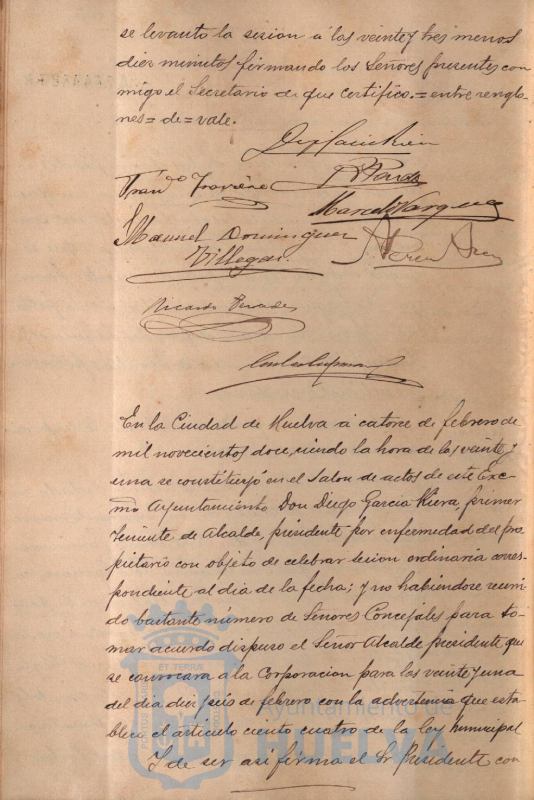 se levantó la sesion á las veinte y tres menos
diez minutos firmando los Señores presentes con
migo el Secretario de que certifico.=entre renglo
nes=de=vale.
Manuel Dominguez
Villegas
Ricardo
En la Ciudad de Huelva á catorce de febrero de
mil novecientos doce, siendo la hora de las veinte y
una se constituyó en el Salon de actos de este Exc
mo Ayuntamiento Don Diego Garcia Riera, primer
Teniente de Alcalde, presidente por enfermedad del pro
pietario con objeto de celebrar sesion ordinaria corres
pondiente al dia de la fecha; y no habiendose reuni
do bastante número de Señores Concejales para to-
mar acuerdo dispuso el Señor Alcalde presidente que
se convocara á la Corporacion para las veinte y una
del dia diez y seis de febrero con la advertencia que esta-
blece el articulo ciento cuatro de la ley Municipal
Y de ser asi firma el Sr Presidente con
PORTUS MARIS
ET TERRÆ
CUSTODIA
Ayuntamiento de
HUELVA